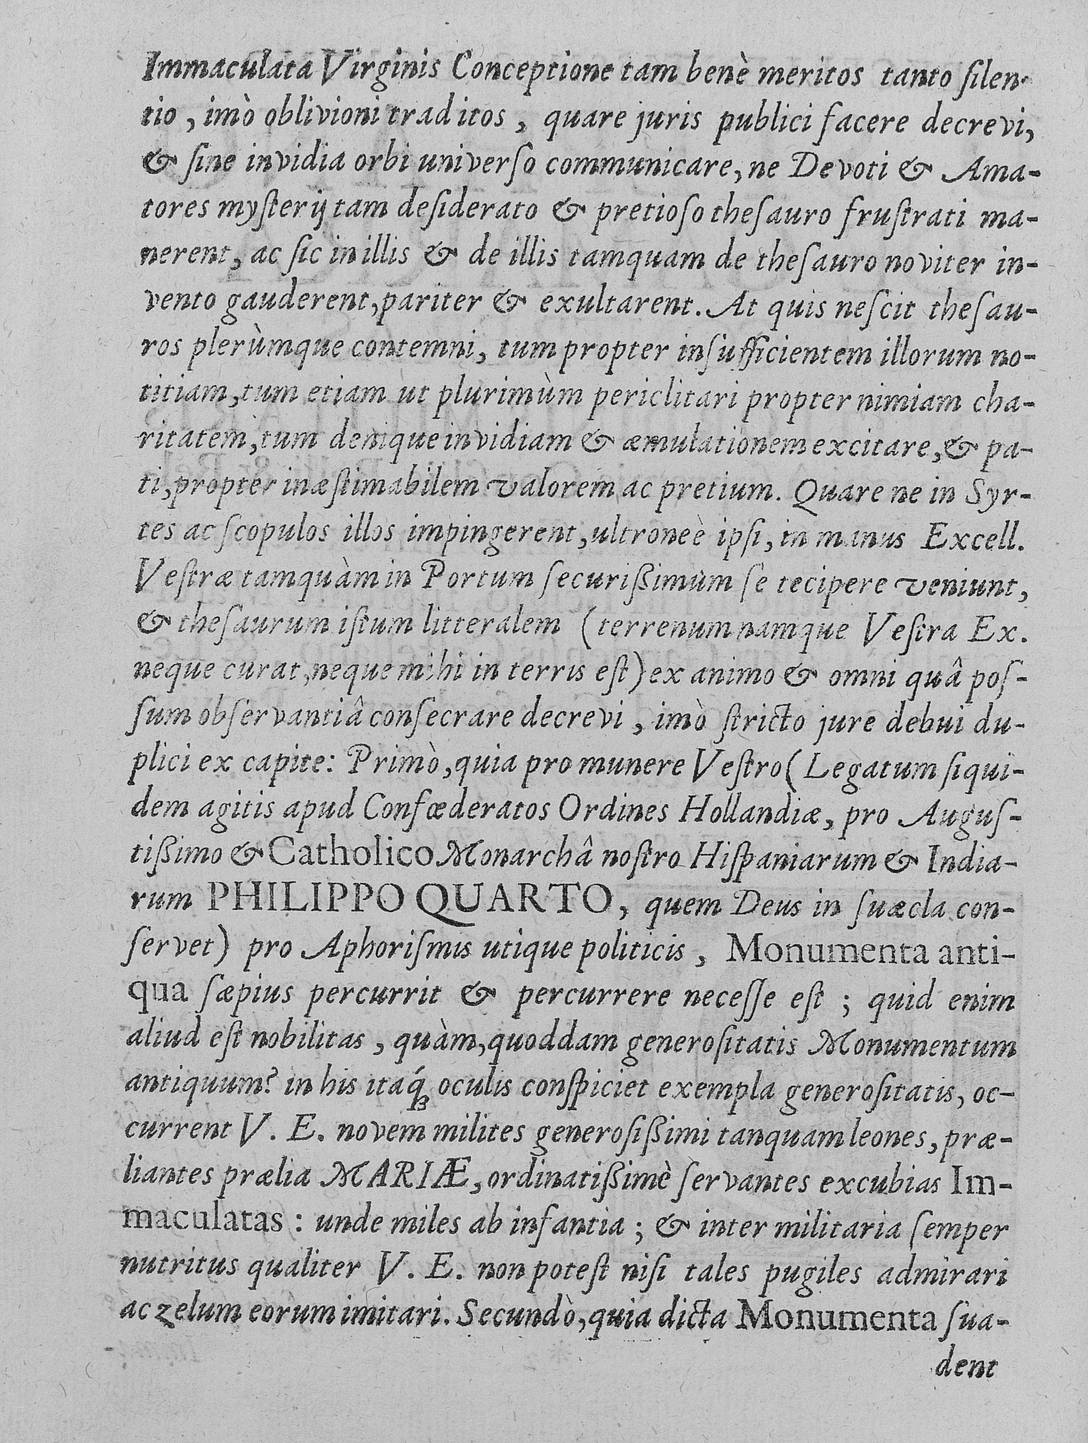 Immaculata Virginis Conceptione tam benè meritos tanto silen-
tio, imò oblivioni traditos, quare juris publici facere decrevi,
& sine invidia orbi universo communicare, ne Devoti & Ama-
tores mysterij tam desiderato & pretioso thesauro frustrati ma-
nerent, ac sic in illis & de illis tamquam de thesauro noviter in-
vento gauderent, pariter & exultarent. At quis nescit thesau-
ros plerùmque contemni, tum propter insufficientem illorum no-
titiam, tum etiam ut plurimùm periclitari propter nimiam cha-
ritatem, tum denique invidiam & æmulationem excitare, & pa-
ti, propter inæstimabilem valorem ac pretium. Quare ne in Syr-
tes ac scopulos illos impingerent, ultroneè ipsi, in manus Excell.
Vestræ tamquàm in Portum securißimum se tecipere veniunt,
& thesaurum istum litteralem (terrenum namque Vestra Ex.
neque curat, neque mihi in terris est) ex animo & omni quâ pos-
sum observantiâ consecrare decrevi, imò stricto jure debui du-
plici ex capite: Primò, quia pro munere Vestro (Legatum siqui-
dem agitis apud Confœderatos Ordines Hollandiæ, pro Augus-
tißimo & Catholico Monarchâ nostro Hispaniarum & India-
rum PHILIPPO QUARTO, quem Deus in suæcla con-
servet) pro Aphorismis utique politicis, Monumenta anti-
qua sæpius percurrit & percurrere necesse est; quid enim
aliud est nobilitas, quàm, quoddam generositatis Monumentum
antiquum? in his itaq́ꝫ oculis conspiciet exempla generositatis, oc-
current V. E. novem milites generosißimi tanquam leones, præ-
liantes prælia MARIÆ, ordinatißimè servantes excubias Im-
maculatas: unde miles ab infantia; & inter militaria semper
nutritus qualiter V. E. non potest nisi tales pugiles admirari
ac zelum eorum imitari. Secundò, quia dicta Monumenta sua-
dent